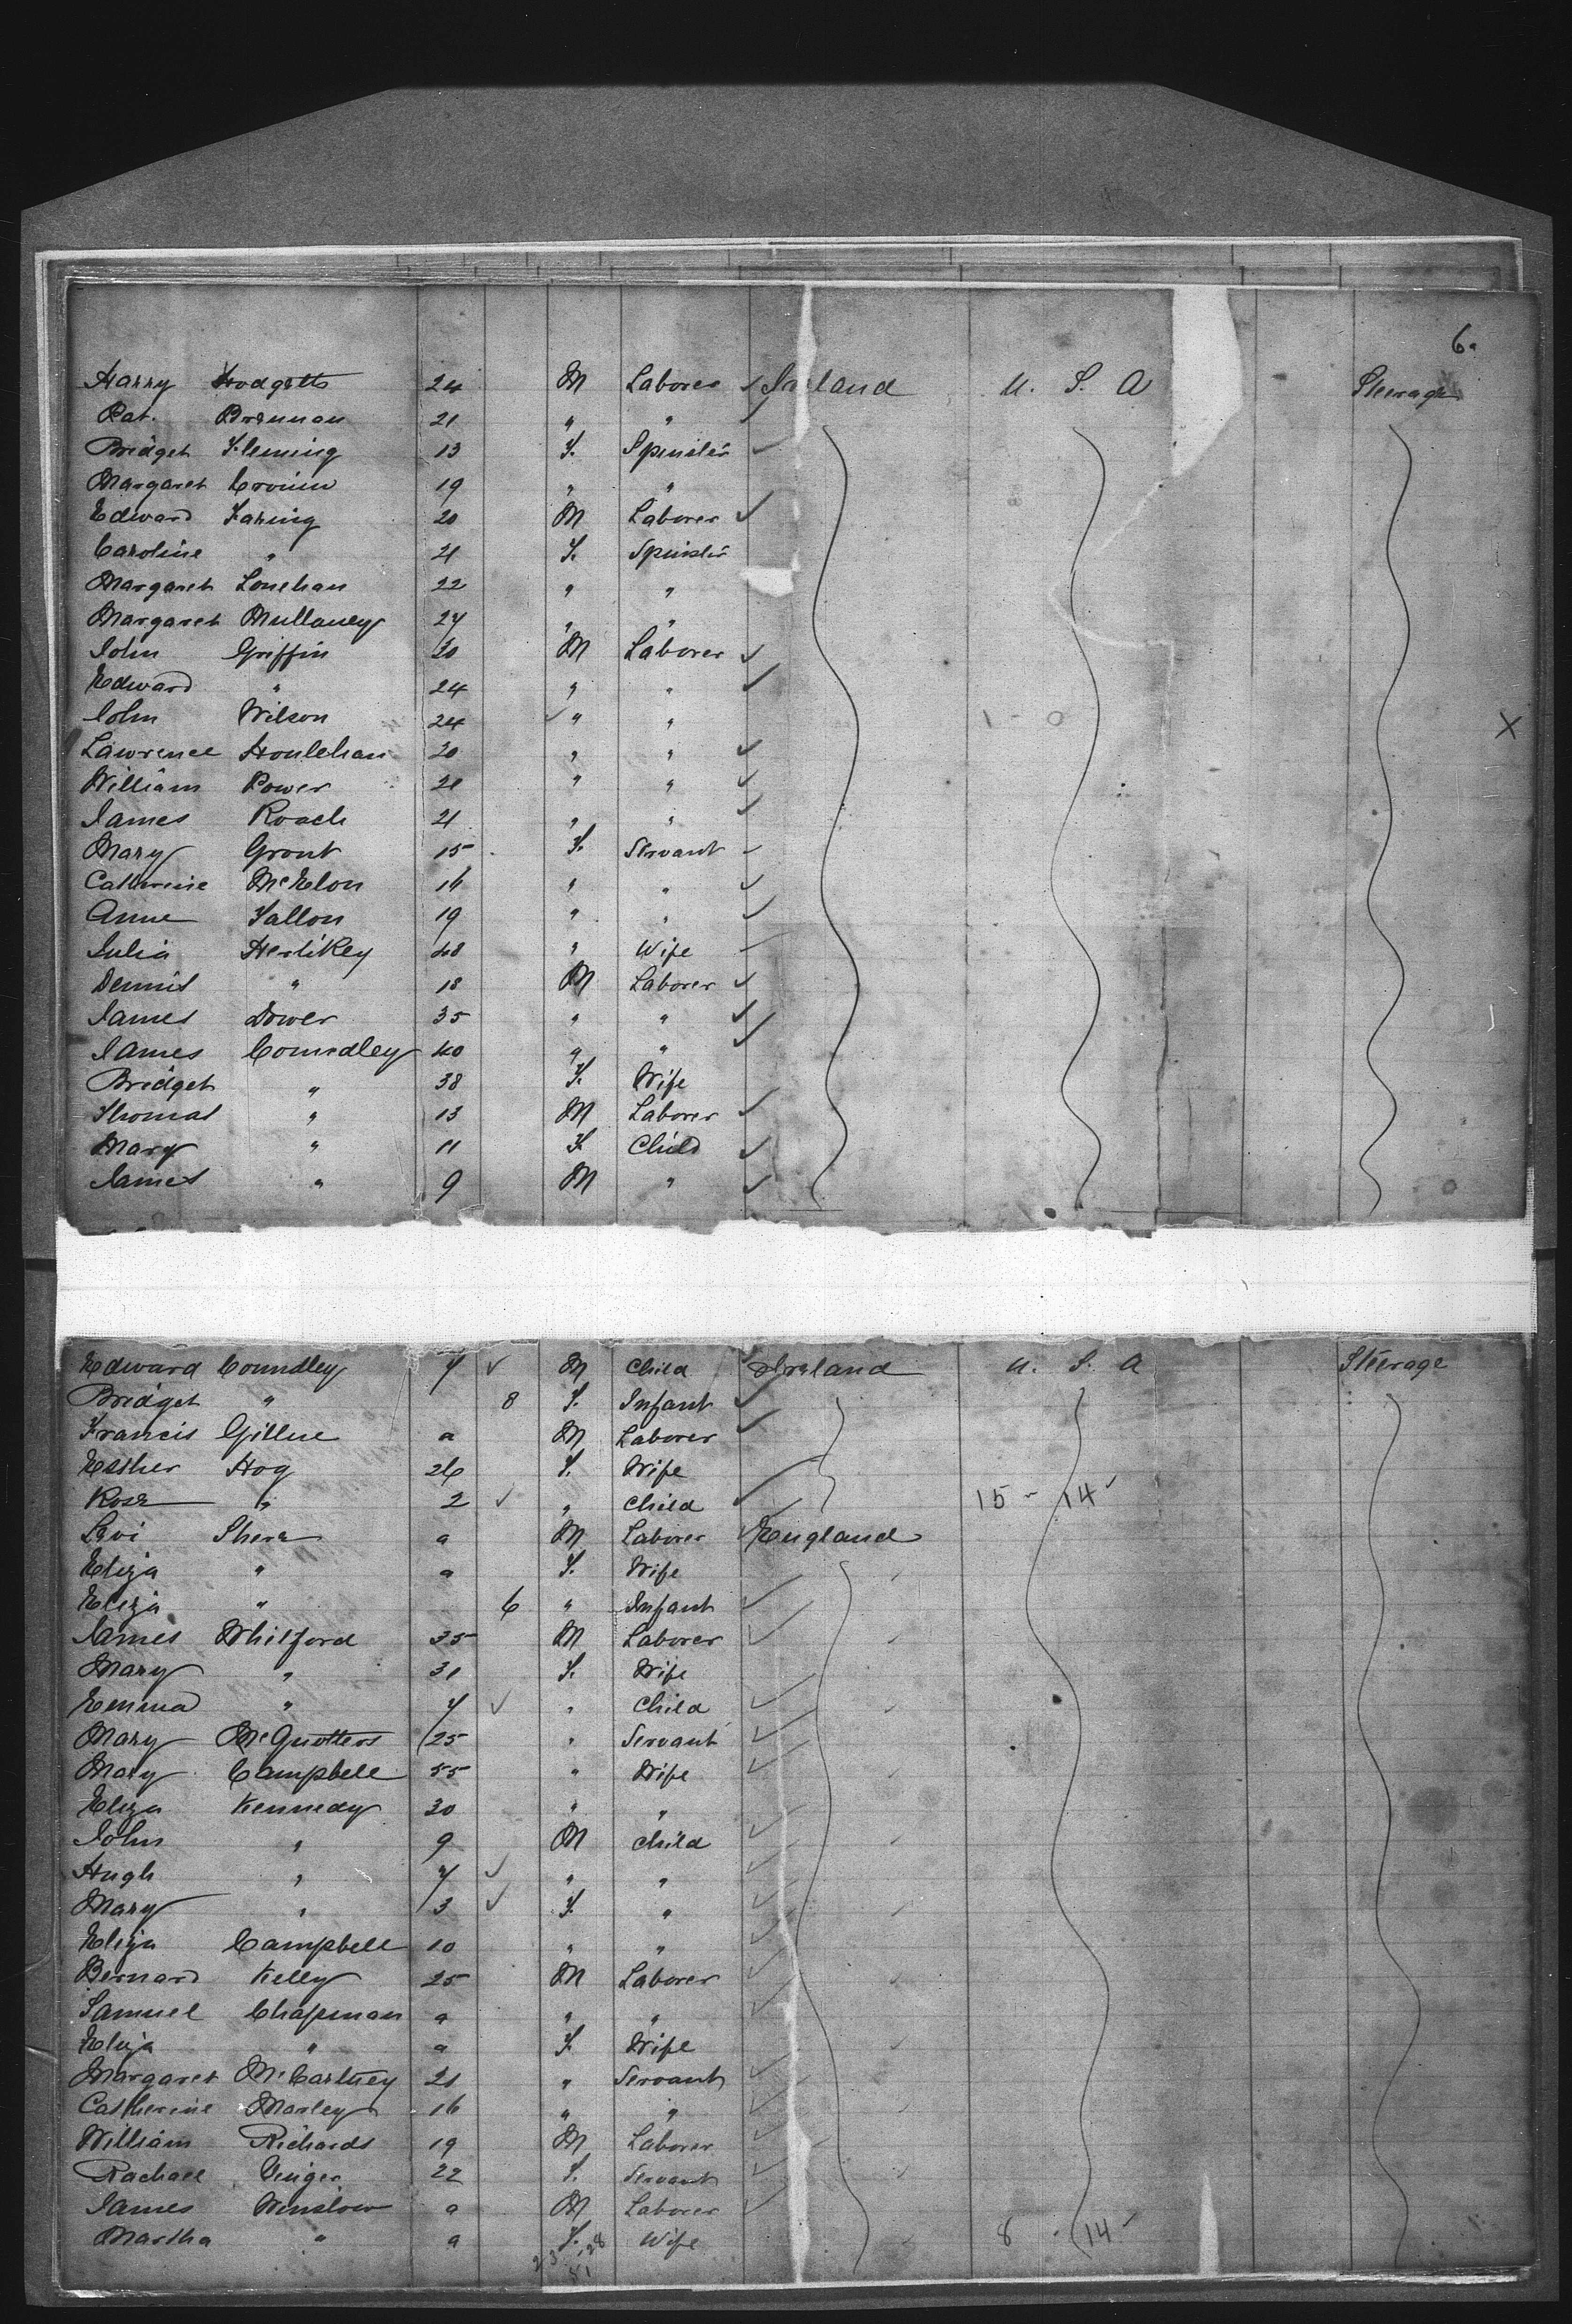 6.
Harry Hodgetts 24 M Laborer Ireland U. S. A Steerage
Pat. Brennan 21 " "
Bridget Fleming 13 F. Spinster
Margaret Cronin 19 " "
Edward Faring 20 M Laborer
Caroline " 21 F. Spinster
Margaret Lonehan 22 " "
Margaret Mullaney 27 " "
John Griffin 20 M Laborer
Edward " 24 " "
John Wilson 24 " " 1 - 0 X
Lawrence Houlehan 20 " "
William Power 21 " "
James Roach 21 " "
Mary Grant 15 F. Servant
Catherine 16 " "
Anne Fallon 19 " "
Julia Herlikey 48 " Wife
Dennis " 18 M Laborer
James Dower 35 " "
James Conndley 40 " "
Bridget " 38 F. Wife
Thomas " 13 M Laborer
Mary " 11 F Child
James " 9 M "
Edward Conndley 7 M Child Ireland U. S. A Steerage
Bridget " 8 F. Infant
Francis a M Laborer
Esther Hog 26 F. Wife
Rose " 2 " Child 15 - 14
Levi Shere a M Laborer England
Eliza " a F. Wife
Eliza " 6 " Infant
James Whitford 35 M Laborer
Mary " 31 F. Wife
Emma " 7 " Child
Mary McQuotters 25 " Servant
Mary Campbell 55 " Wife
Eliza Kennedy 30 " "
John " 9 M Child
Hugh " 7 " "
Mary " 3 F. "
Eliza Campbell 10 " "
Bernard Kelly 25 M Laborer
Samuel Chapman a " "
Eliza " a F. Wife
Margaret McCartney 21 " Servant
Catherine Marley 16 " "
William Richards 19 M Laborer
Rachael 22 F. Servant
James Winslow a M Laborer
Martha " a F. Wife 8 - 14